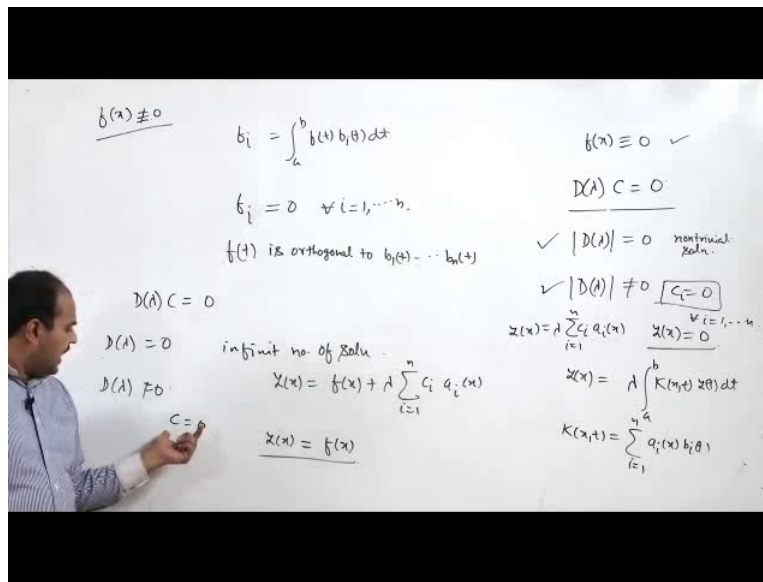 f(x) ≢ 0
fᵢ = ∫ₐᵇ f(t) bᵢ(t) dt
fᵢ = 0 ∀ i=1,⋯n.
f(t) is orthogonal to b₁(t) -⋯ bₙ(t)
D(λ) C = 0
D(λ) = 0 infinit no. of soln.
D(λ) ≠ 0.
C = 0
z(x) = f(x) + λ ∑ᵢ₌₁ⁿ cᵢ aᵢ(x)
z(x) = f(x)
f(x) ≡ 0 ✓
D(λ) C = 0
✓ |D(λ)| = 0 nontrivial soln.
✓ |D(λ)| ≠ 0 cᵢ = 0
∀ i=1,⋯n
z(x) = λ ∑ᵢ₌₁ⁿ cᵢ aᵢ(x) z(x) = 0
z(x) = λ ∫ₐᵇ K(x,t) z(t) dt
K(x,t) = ∑ᵢ₌₁ⁿ aᵢ(x) bᵢ(t)